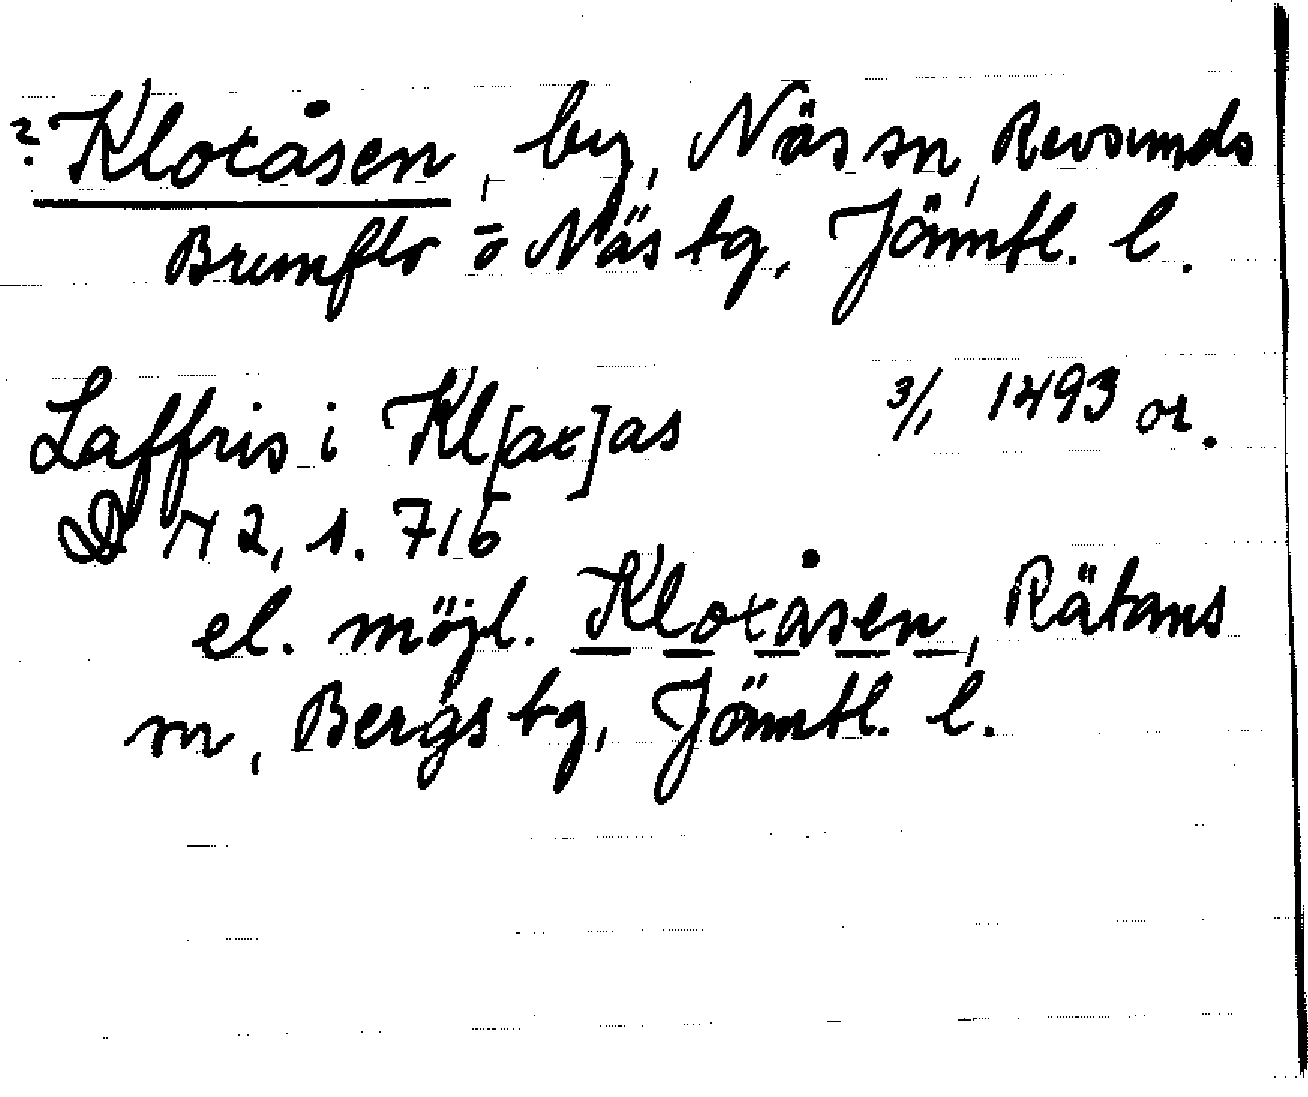 ? Kloxåsen, by, Näs sn, Revsunds
Brunflo o Näs tg, Jämtl. l.
Laffris i Kl[ax]as 3/1 1493 or.
D 142, s. 716
el. möjl. Kloxåsen, Rätans
sn, Bergs tg, Jämtl. l.